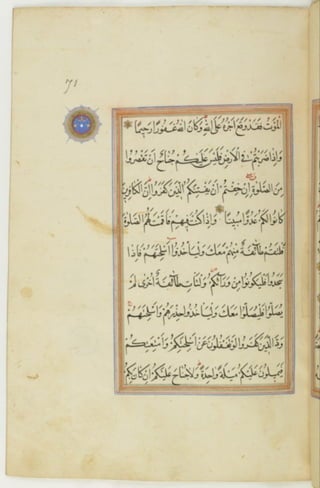 الْمَوْتُ فَقَدْ وَقَعَ اَجْرُهُ عَلَى اللّٰهِ وَكَانَ اللّٰهُ غَفُورًا رَحِيمًا
وَاِذَا ضَرَبْتُمْ فِي الْاَرْضِ فَلَيْسَ عَلَيْكُمْ جُنَاحٌ اَنْ تَقْصُرُوا
مِنَ الصَّلٰوةِ اِنْ خِفْتُمْ اَنْ يَفْتِنَكُمُ الَّذِينَ كَفَرُوا اِنَّ الْكَافِرِينَ
كَانُوا لَكُمْ عَدُوًّا مُبِينًا وَاِذَا كُنْتَ فِيهِمْ فَاَقَمْتَ لَهُمُ الصَّلٰوةَ
فَلْتَقُمْ طَآئِفَةٌ مِنْهُمْ مَعَكَ وَلْيَاْخُذُوا اَسْلِحَتَهُمْ فَاِذَا
سَجَدُوا فَلْيَكُونُوا مِنْ وَرَآئِكُمْ وَلْتَاْتِ طَآئِفَةٌ اُخْرٰى لَمْ
يُصَلُّوا فَلْيُصَلُّوا مَعَكَ وَلْيَاْخُذُوا حِذْرَهُمْ وَاَسْلِحَتَهُمْ
وَدَّ الَّذِينَ كَفَرُوا لَوْ تَغْفُلُونَ عَنْ اَسْلِحَتِكُمْ وَاَمْتِعَتِكُمْ
فَيَمِيلُونَ عَلَيْكُمْ مَيْلَةً وَاحِدَةً وَلَا جُنَاحَ عَلَيْكُمْ اِنْ كَانَ بِكُمْ